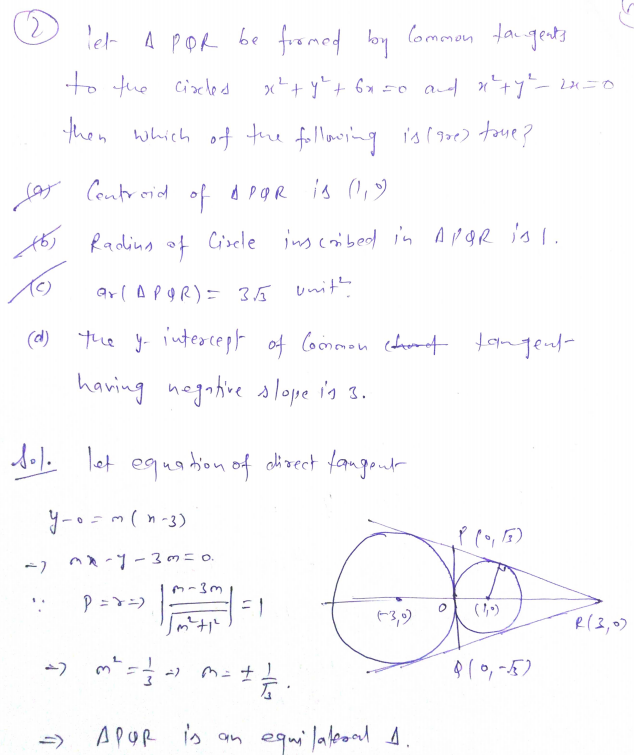 (2) let Δ PQR be formed by Common tangents
to the circles x²+y²+6x=0 and x²+y²-2x=0
then which of the following is(are) true?
(a) Centroid of Δ PQR is (1,0)
(b) Radius of Circle inscribed in Δ PQR is 1.
(c) ar(Δ PQR) = 3√3 unit².
(d) the y-intercept of Common tangent
having negative slope is 3.
Sol. let equation of direct tangent
y-0 = m(x-3)
=> mx-y-3m=0.
∵ P=r => |m-3m / √m²+1²| = 1
=> m² = 1/3 => m = ± 1/√3.
=> ΔPQR is an equilateral Δ.
P(0,√3)
(-3,0)
O
(1,0)
R(3,0)
Q(0,-√3)